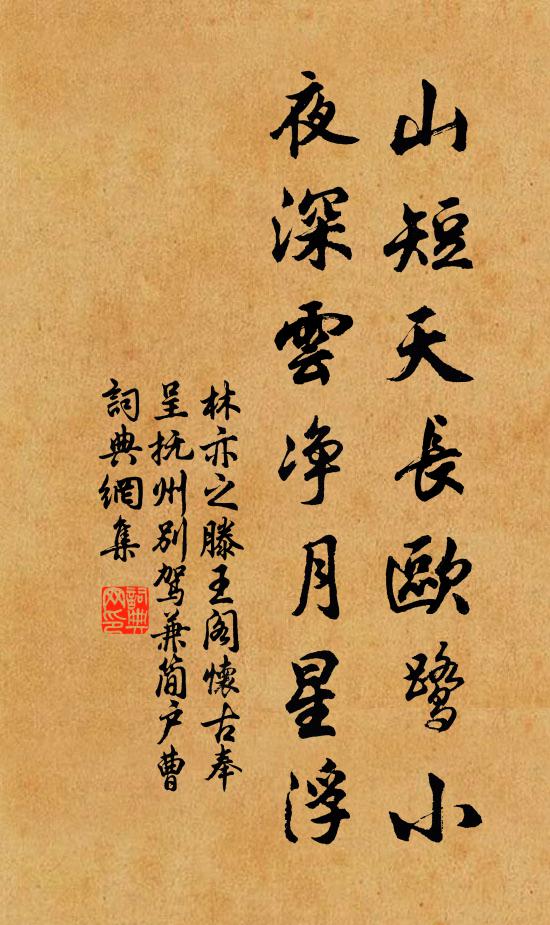 山短天長歐鹭小
夜深雲净月星浮
林亦之滕王阁懷古奉
呈抚州别驾兼简户曹
詞典網集
詞典
网印